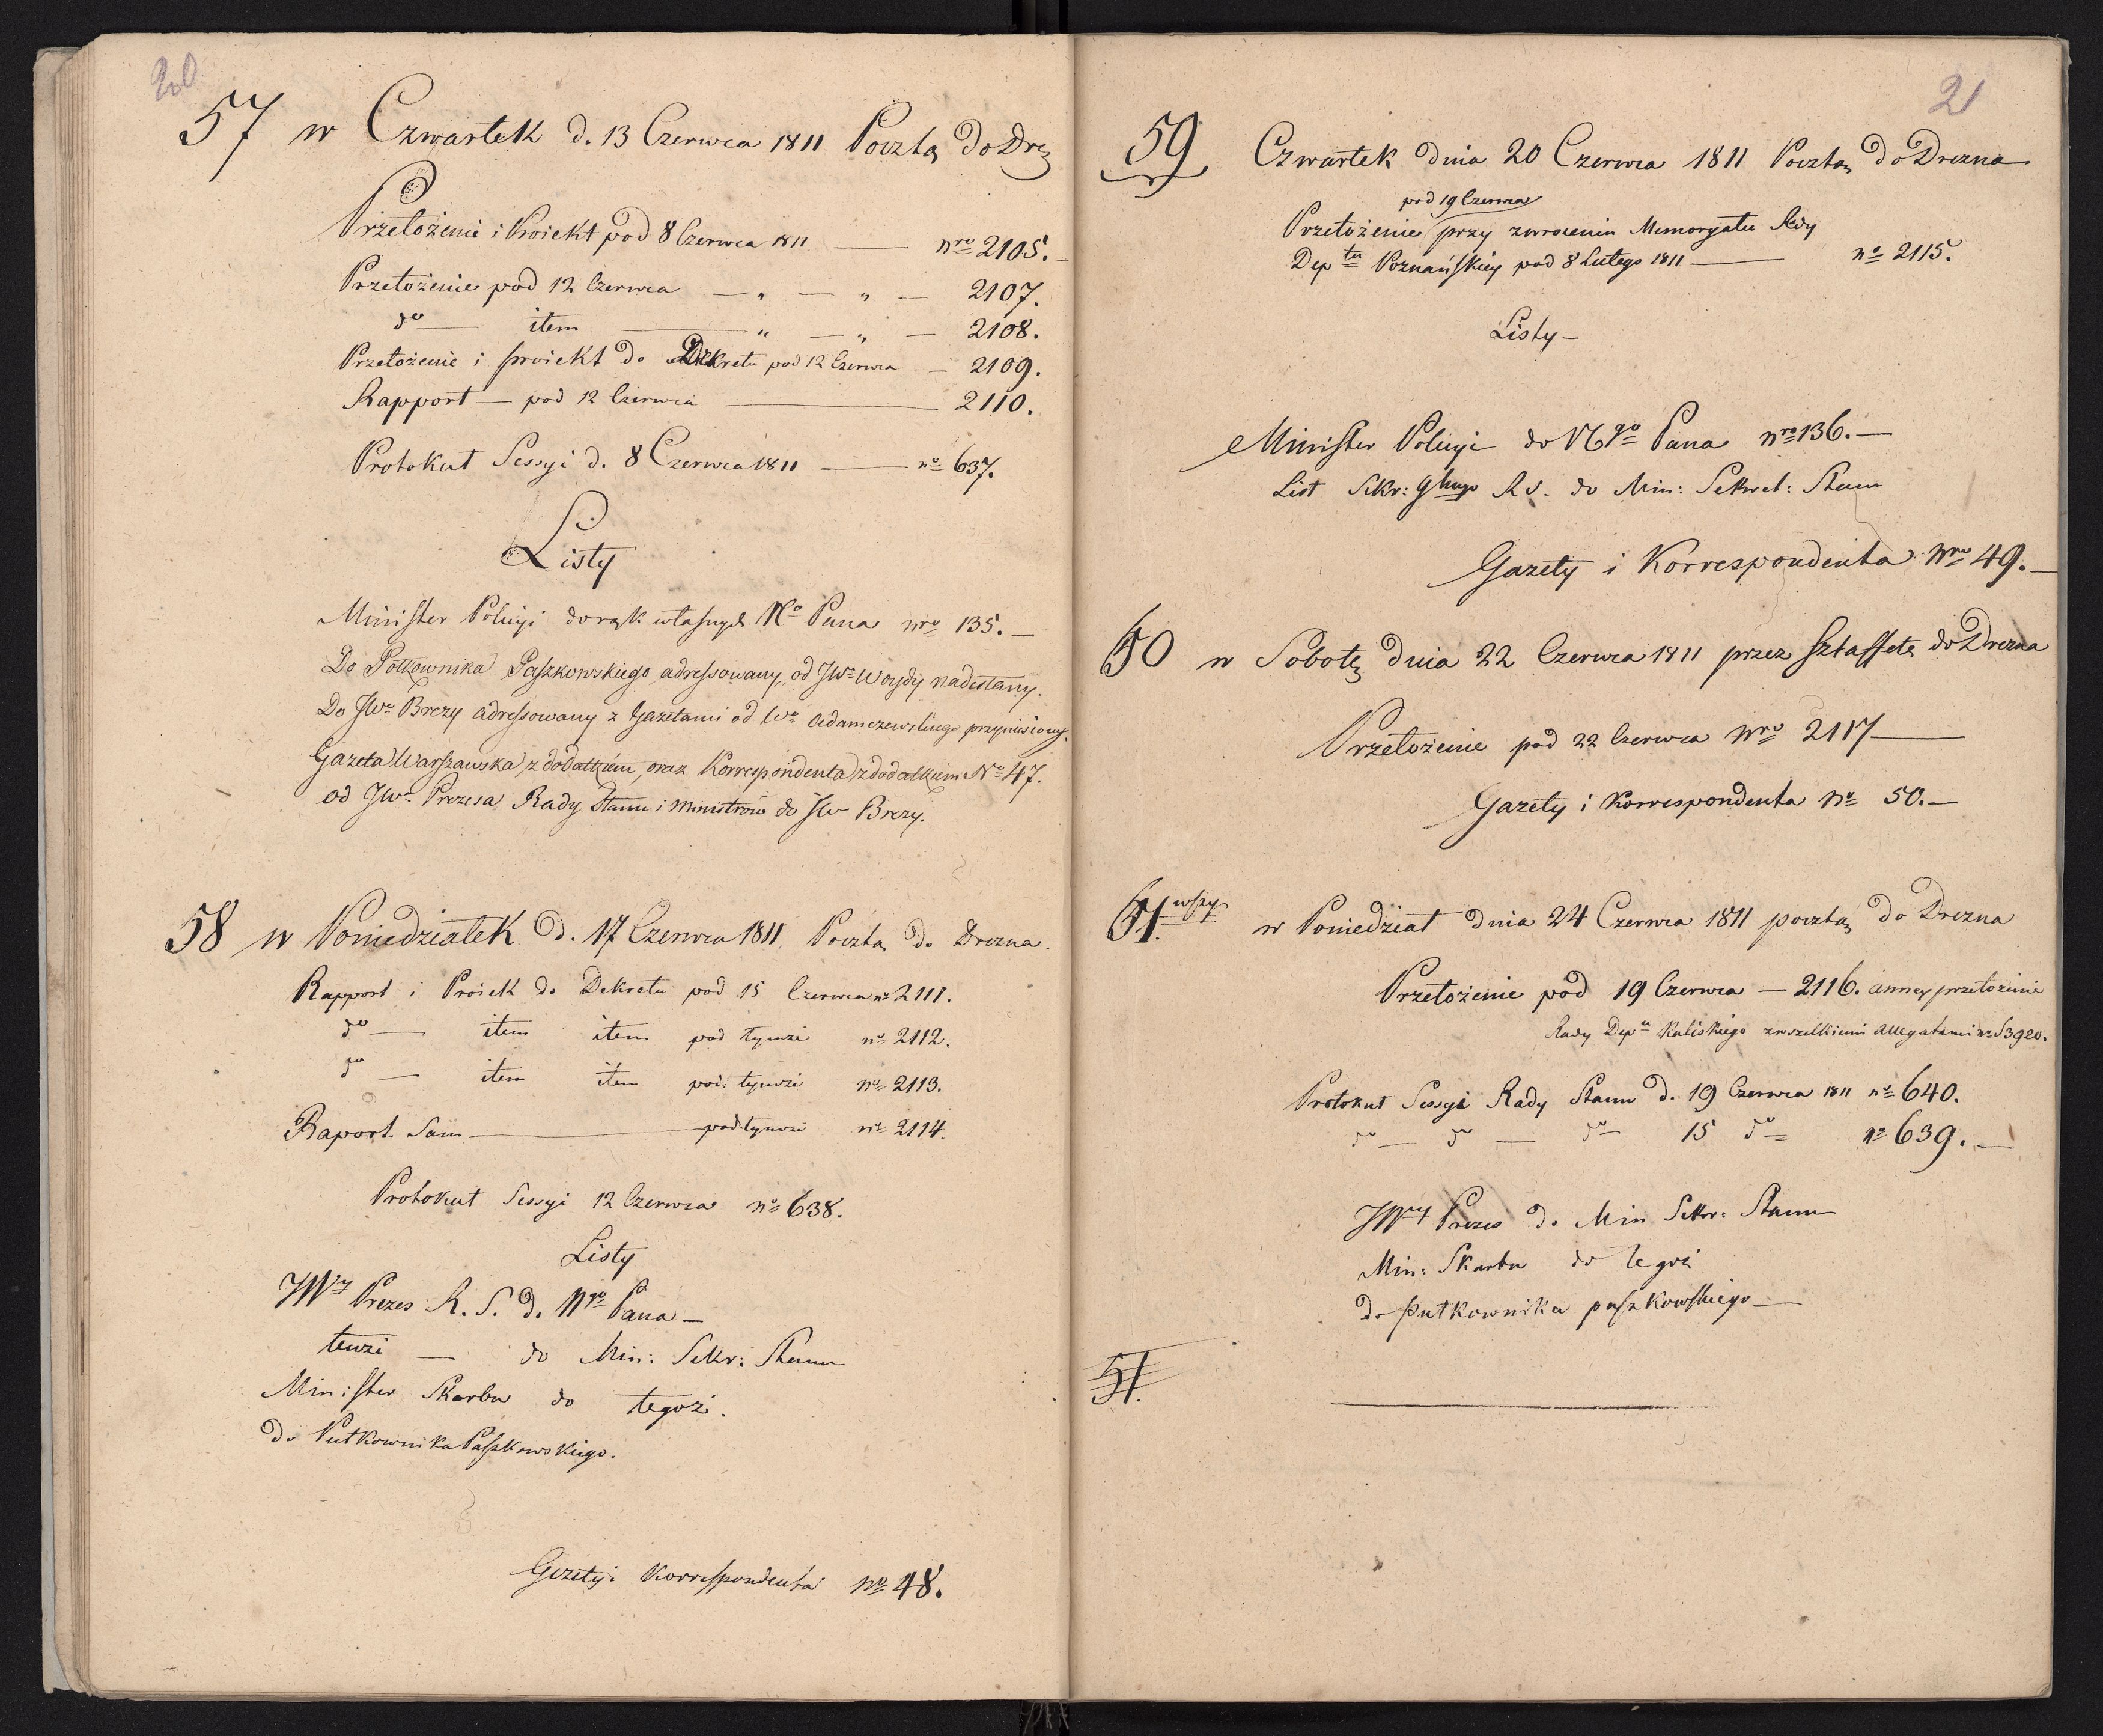 20
57 w Czwartek d. 13 Czerwca 1811 Pocztą do Drez
Przełożenie i Proiekt pod 8 Czerwca 1811 — nro 2105.
Przełożenie pod 12 Czerwca — " — " — 2107.
do — item — " — " — 2108.
Przełożenie i proiekt do Dekretu pod 12 Czerwca — 2109.
Rapport — pod 12 Czerwca — 2110.
Protokuł Sessyi d. 8 Czerwca 1811 — no 637.
Listy
Minister Policyi do rąk własnych No Pana nro 135. —
Do Połkownika Paszkowskiego adressowany, od JWo Woydy nadesłany.
Do JWo Brezy adressowany z Gazetami od Wo Adamczewskiego przyniesiony.
Gazeta Warszawska z dodatkiem, oraz Korrespondenta z dodatkiem No 47.
od JWo Prezesa Rady Stanu i Ministrów do JW Brezy.
58 w Poniedziałek d. 17 Czerwca 1811, Pocztą do Drezna.
Rapport i Proiek do Dekretu pod 15 Czerwca no 2111.
do — item item pod tymże no 2112.
do — item item pod tymże no 2113.
Raport Sam — pod tymże no 2114.
Protokuł Sessyi 12 Czerwca no 638.
Listy
JWny Prezes R. S. do Ngo Pana —
tenże — do Min: Sekr: Stanu
Minister Skarbu do tegoż.
do Pułkownika Paszkowskiego.
Gazety i Korrespondenta no 48.
21
59 Czwartek dnia 20 Czerwca 1811 Pocztą do Drezna
pod 19 Czerwca
Przełożenie przy zwroceniu Memoryału Rdy
Deptu Poznańskiey pod 8 Lutego 1811 — no 2115.
Listy —
Minister Policyi do Ngo Pana nro 136. —
List Sekr: Głnego R S. do Min: Sekret: Stanu
Gazety i Korrespondenta nro 49. —
60 w Sobotę dnia 22 Czerwca 1811 przez sztaffetę do Drezna
Przełożenie pod 22 Czerwca nro 2117 —
Gazety i Korrespondenta no 50. —
61.wszy w Poniedziat dnia 24 Czerwca 1811 pocztą do Drezna
Przełożenie pod 19 Czerwca — 2116. annex przełożenie
Rady Depu Kaliskiego z wszelkiemi allegatami no 53920.
Protokuł Sessyi Rady Stanu d. 19 Czerwca 1811 no 640.
do — do — do — 15 do — no 639. —
JWny Prezes do Min Sekr: Stanu
Min: Skarbu do tegoż
do pułkownika paszkowskiego —
51.